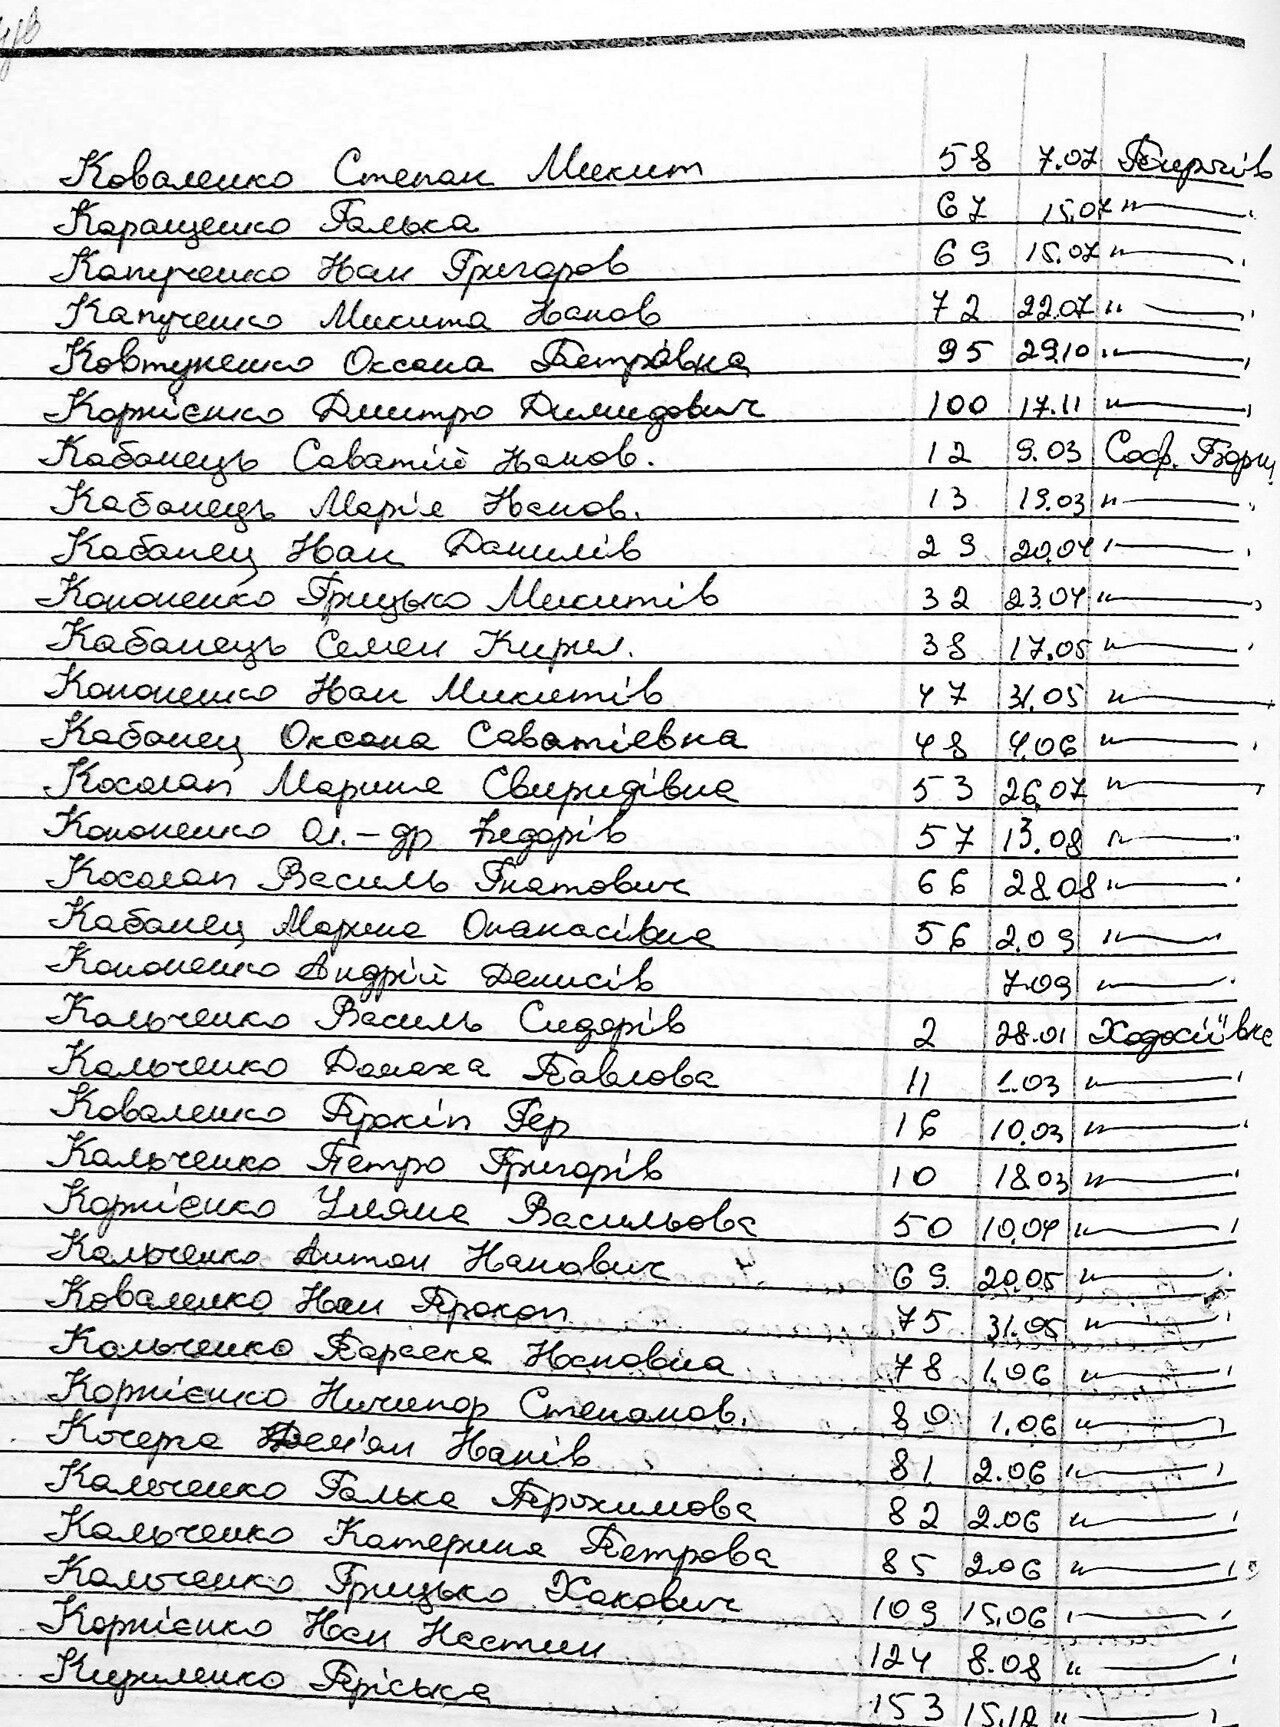 Коваленко Степан Микит 58 7.07 Пирогів
Каращенко Галька 67 15.07 "——
Капученко Иван Григоров 69 15.07 "——
Капученко Микита Иванов 72 22.07 "——
Ковтуненко Оксана Петрівна 95 29.10 "——
Корнієнко Дмитро Димидович 100 17.11 "——
Кабанець Саватій Иванов. 12 9.03 Соф. Борщ
Кабанець Марія Иванов. 13 19.03 "——
Кабанец Иван Данилів 29 20.04 "——
Кононенко Грицько Микитів 32 23.04 "——
Кабанець Семен Кирил. 38 17.05 "——
Кононенко Иван Микитів 47 31.05 "——
Кабанец Оксана Саватіевна 48 4.06 "——
Косолап Марина Свиридівна 53 26.07 "——
Кононенко Ол.-др Федорів 57 13.08 "——
Косолап Василь Гнатович 66 28.08 "——
Кабанец Марина Опанасівна 56 2.09 "——
Кононенко Андрій Денисів 7.09 "——
Кальченко Василь Сидорів 2 28.01 Ходосіївка
Кальченко Домаха Павлова 11 1.03 "——
Коваленко Прокіп Гер 16 10.03 "——
Кальченко Петро Григорів 10 18.03 "——
Корнієнко Уляна Васильова 50 10.04 "——
Кальченко Антон Иванович 69 20.05 "——
Коваленко Иван Прокоп 75 31.05 "——
Кальченко Параска Ивановна 78 1.06 "——
Корнієнко Ничипор Степанов. 80 1.06 "——
Кочерга Дем'ян Иванів 81 2.06 "——
Кальченко Галька Прохимова 82 2.06 "——
Кальченко Катерина Петрова 85 2.06 "——
Кальченко Грицько Хакович 109 15.06 "——
Корнієнко Иван Настин 124 8.08 "——
Кириленко Пріська 153 15.12 "——